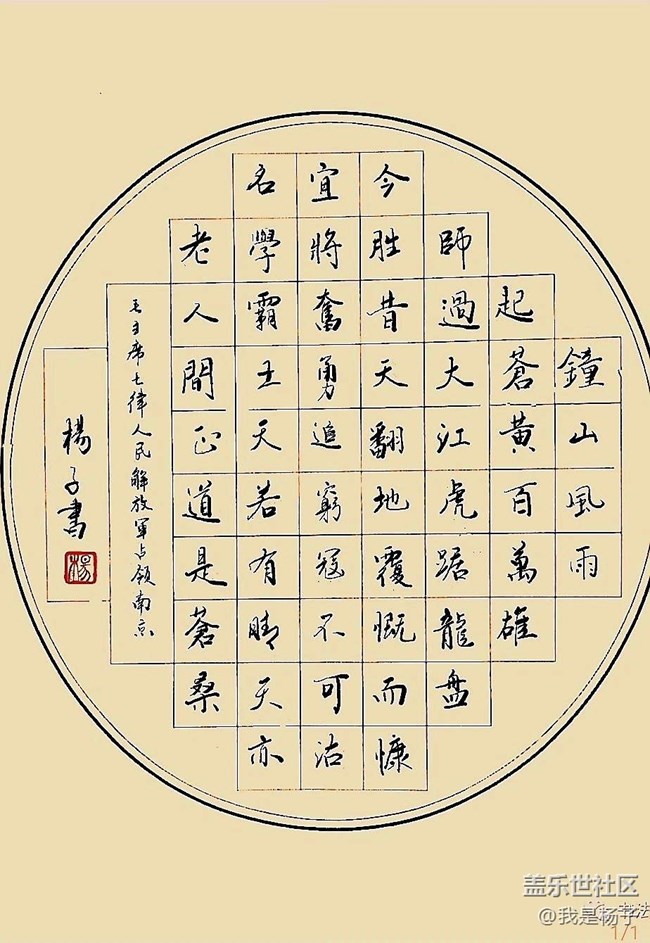 鐘山風雨
起蒼黃百萬雄
師過大江虎踞龍盤
今胜昔天翻地覆慨而慷
宜將奮勇追窮冦不可沽
名學霸王天若有情天亦
老人間正道是蒼桑
毛主席七律人民解放軍占領南京
楊子書
楊
盖乐世社区
@我是杨子
1/1